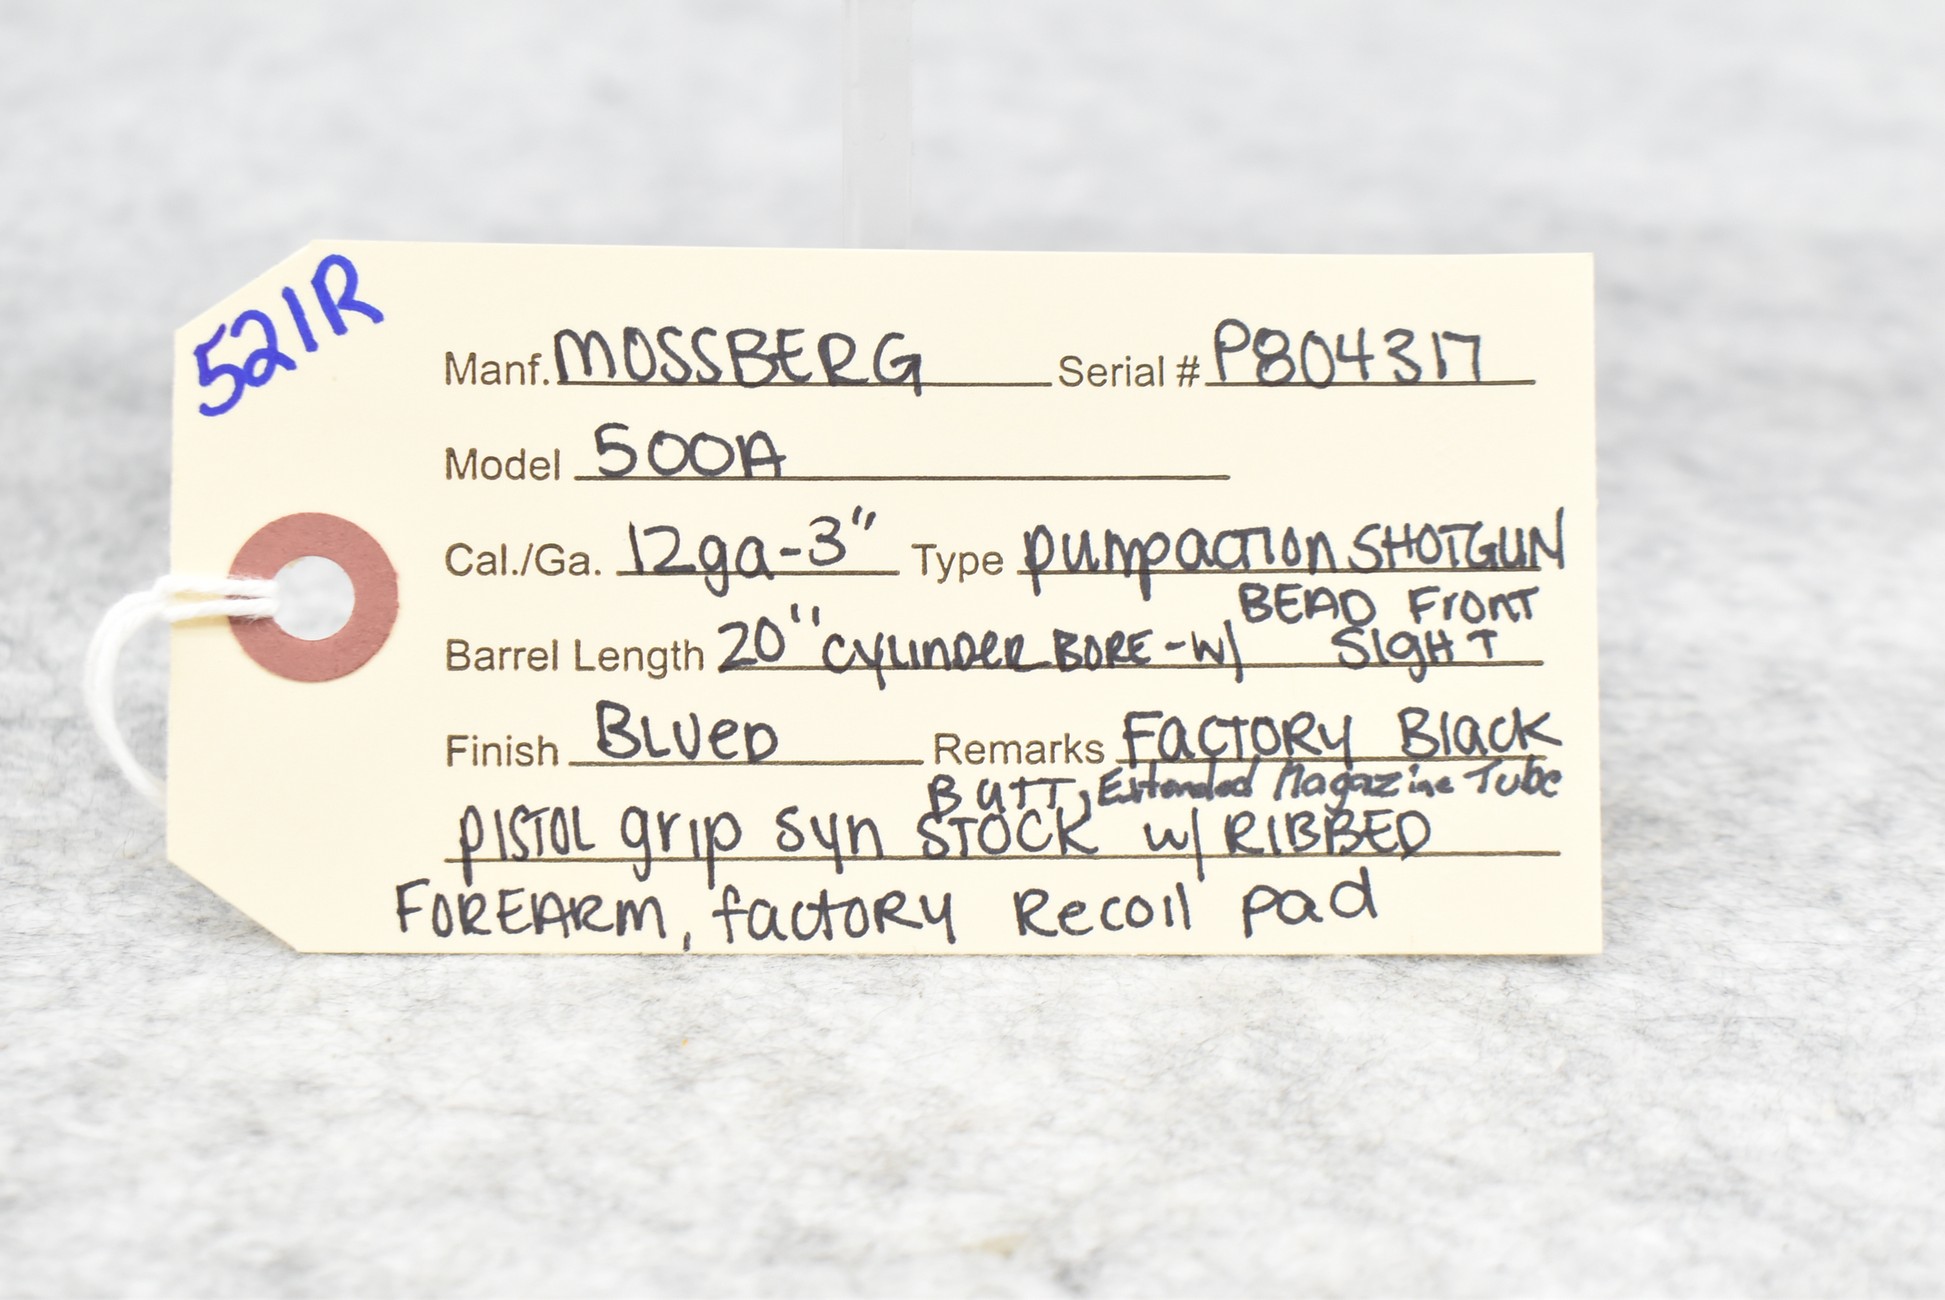 521R
Manf. MOSSBERG Serial # P804317
Model 500A
Cal./Ga. 12ga-3" Type pumpaction SHOTGUN
BEAD Front
Barrel Length 20" cylinder BORE-w/ SigHT
Finish BLUED Remarks FACTORY Black
BUTT, Extended Magazine Tube
PISTOL grip syn STOCK w/ RIBBED
FOREARM, factory Recoil pad